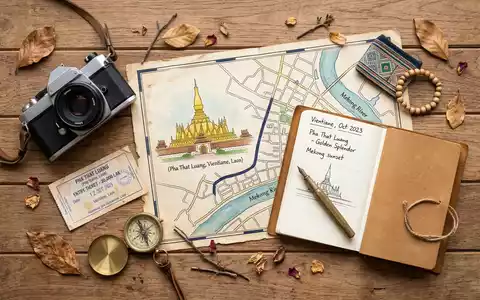 PHA THAT LUANG
12 OCT 2023
(Pha That Luang, Vientiane, Laos)
Mekong River
Mekong River
Vientiane, Oct 2023
Pha That Luang
- Golden Splendor
Mekong sunset